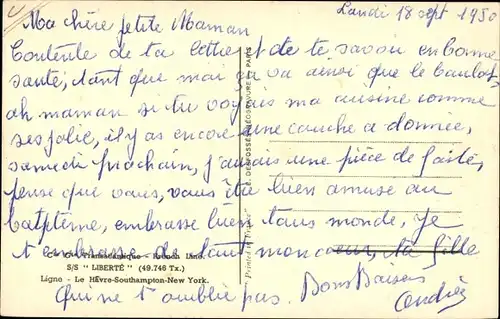 Lundi 18 sept 1950
Ma chère petite Maman
Contente de ta lettre et de te savoir en bonne
santé, tant que moi ça va ainsi que le boulot,
ah maman si tu voyais ma cuisine comme
ses jolie, il y as encore une couche a donnée,
samedi prochain, j'aurais une pièce de faite,
pense que vous, vous êtes bien amuse au
batptême, embrasse bien tous monde, Je
t embrasse de tout mon cœur, ta fille
Qui ne t oublie pas. Bons Baisers
Andrée
Cie Gle Transatlantique - French Line.
S/S " LIBERTÉ " (49.746 Tx.)
Ligne - Le Hâvre-Southampton-New York.
Printed in France